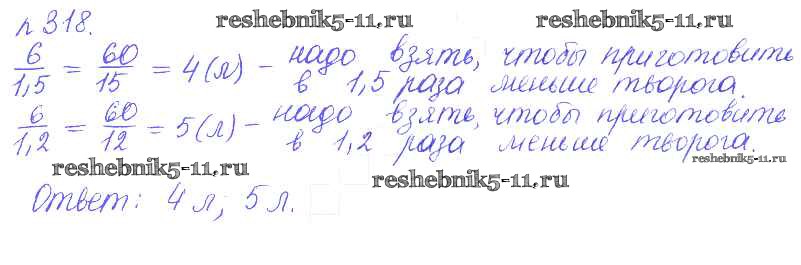 reshebnik5-11.ru
№ 318.
6/1,5 = 60/15 = 4 (л) - надо взять, чтобы приготовить
в 1,5 раза меньше творога.
6/1,2 = 60/12 = 5 (л) - надо взять, чтобы приготовить
в 1,2 раза меньше творога.
reshebnik5-11.ru
reshebnik5-11.ru
reshebnik5-11.ru
Ответ: 4 л; 5 л.